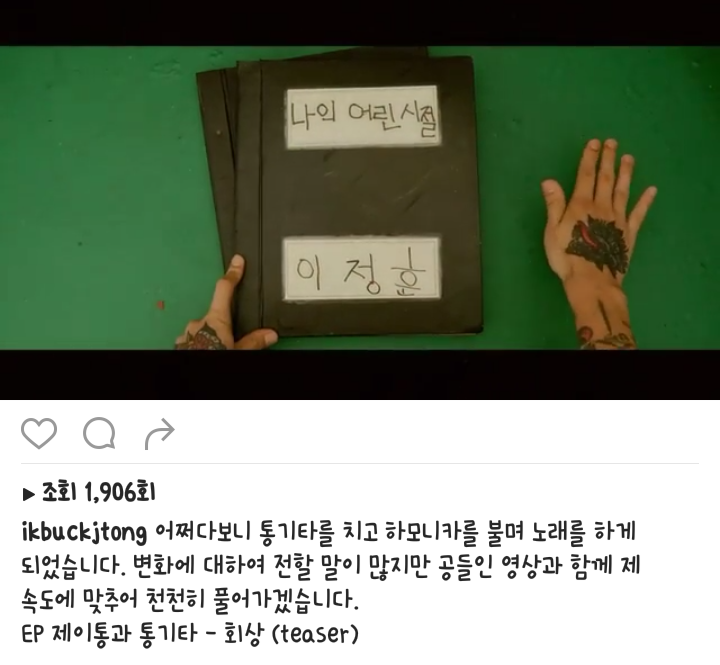 나의 어린시절
이 정 훈
조회 1,906회
ikbuckjtong 어쩌다보니 통기타를 치고 하모니카를 불며 노래를 하게
되었습니다. 변화에 대하여 전할 말이 많지만 공들인 영상과 함께 제
속도에 맞추어 천천히 풀어가겠습니다.
EP 제이통과 통기타 - 회상 (teaser)